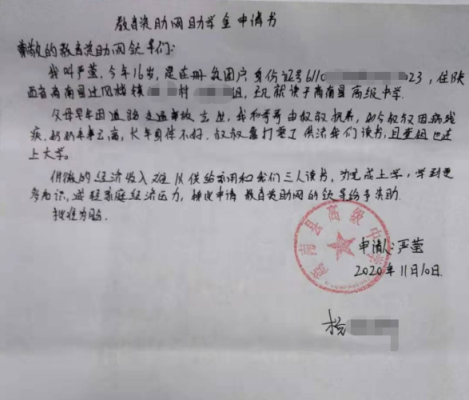 教育资助网助学金申请书
尊敬的教育资助网领导们：
我叫严萱，今年16岁，是在册贫困户，身份证号6110 23，住陕
西省商南县过风楼镇 村 组，现就读于商南县高级中学。
父母早年因道路交通事故去世，我和哥哥由叔叔抚养，如今叔叔因病残
疾，奶奶年事已高，长年身体不好，叔叔靠打零工供活我们读书，且 也在
上大学。
供微的经济收入难以供给家用和我们三人读书，为完成上学，学到更
多知识，减轻家庭经济压力，特此申请教育资助网的领导给予资助。
批准为盼。
商南县高级中学
申请人：严萱
2020年11月10日
杨